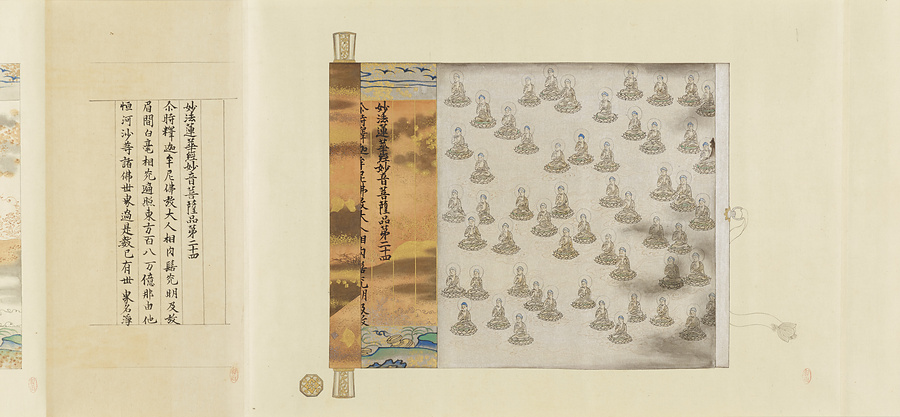 妙法蓮華經妙音菩薩品第二十四
尒時釋迦牟尼佛放大人相肉髻光明及放
妙法蓮華經妙音菩薩品第二十四
尒時釋迦牟尼佛放大人相肉髻光明及放
眉間白毫相光遍照東方百八万億那由他
恒河沙等諸佛世界過是數已有世界名淨